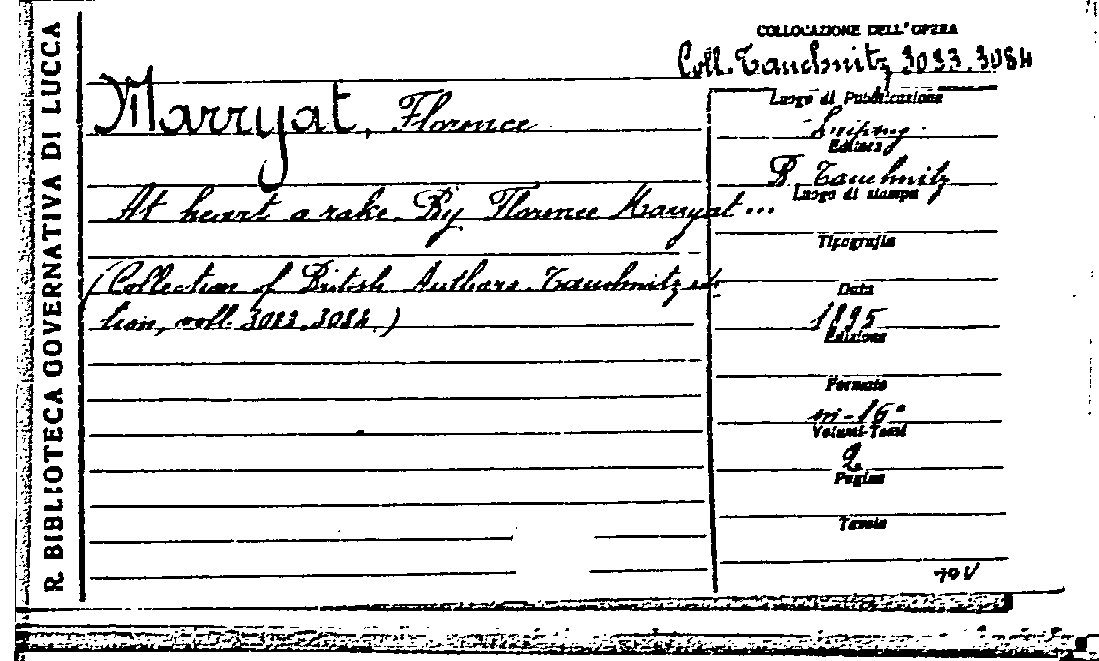 R. BIBLIOTECA GOVERNATIVA DI LUCCA
COLLOCAZIONE DELL'OPERA
Coll. Tauchnitz 3083.3084
Marryat, Florence
At heart a rake. By Florence Marryat...
(Collection of British Authors. Tauchnitz edi-
tion, voll. 3083.3084.)
Luogo di Pubblicazione
Leipzig
Editore
B. Tauchnitz
Luogo di stampa
Tipografia
Data
1895
Edizione
Formato
in-16°
Volumi-Tomi
2
Pagine
Tavole